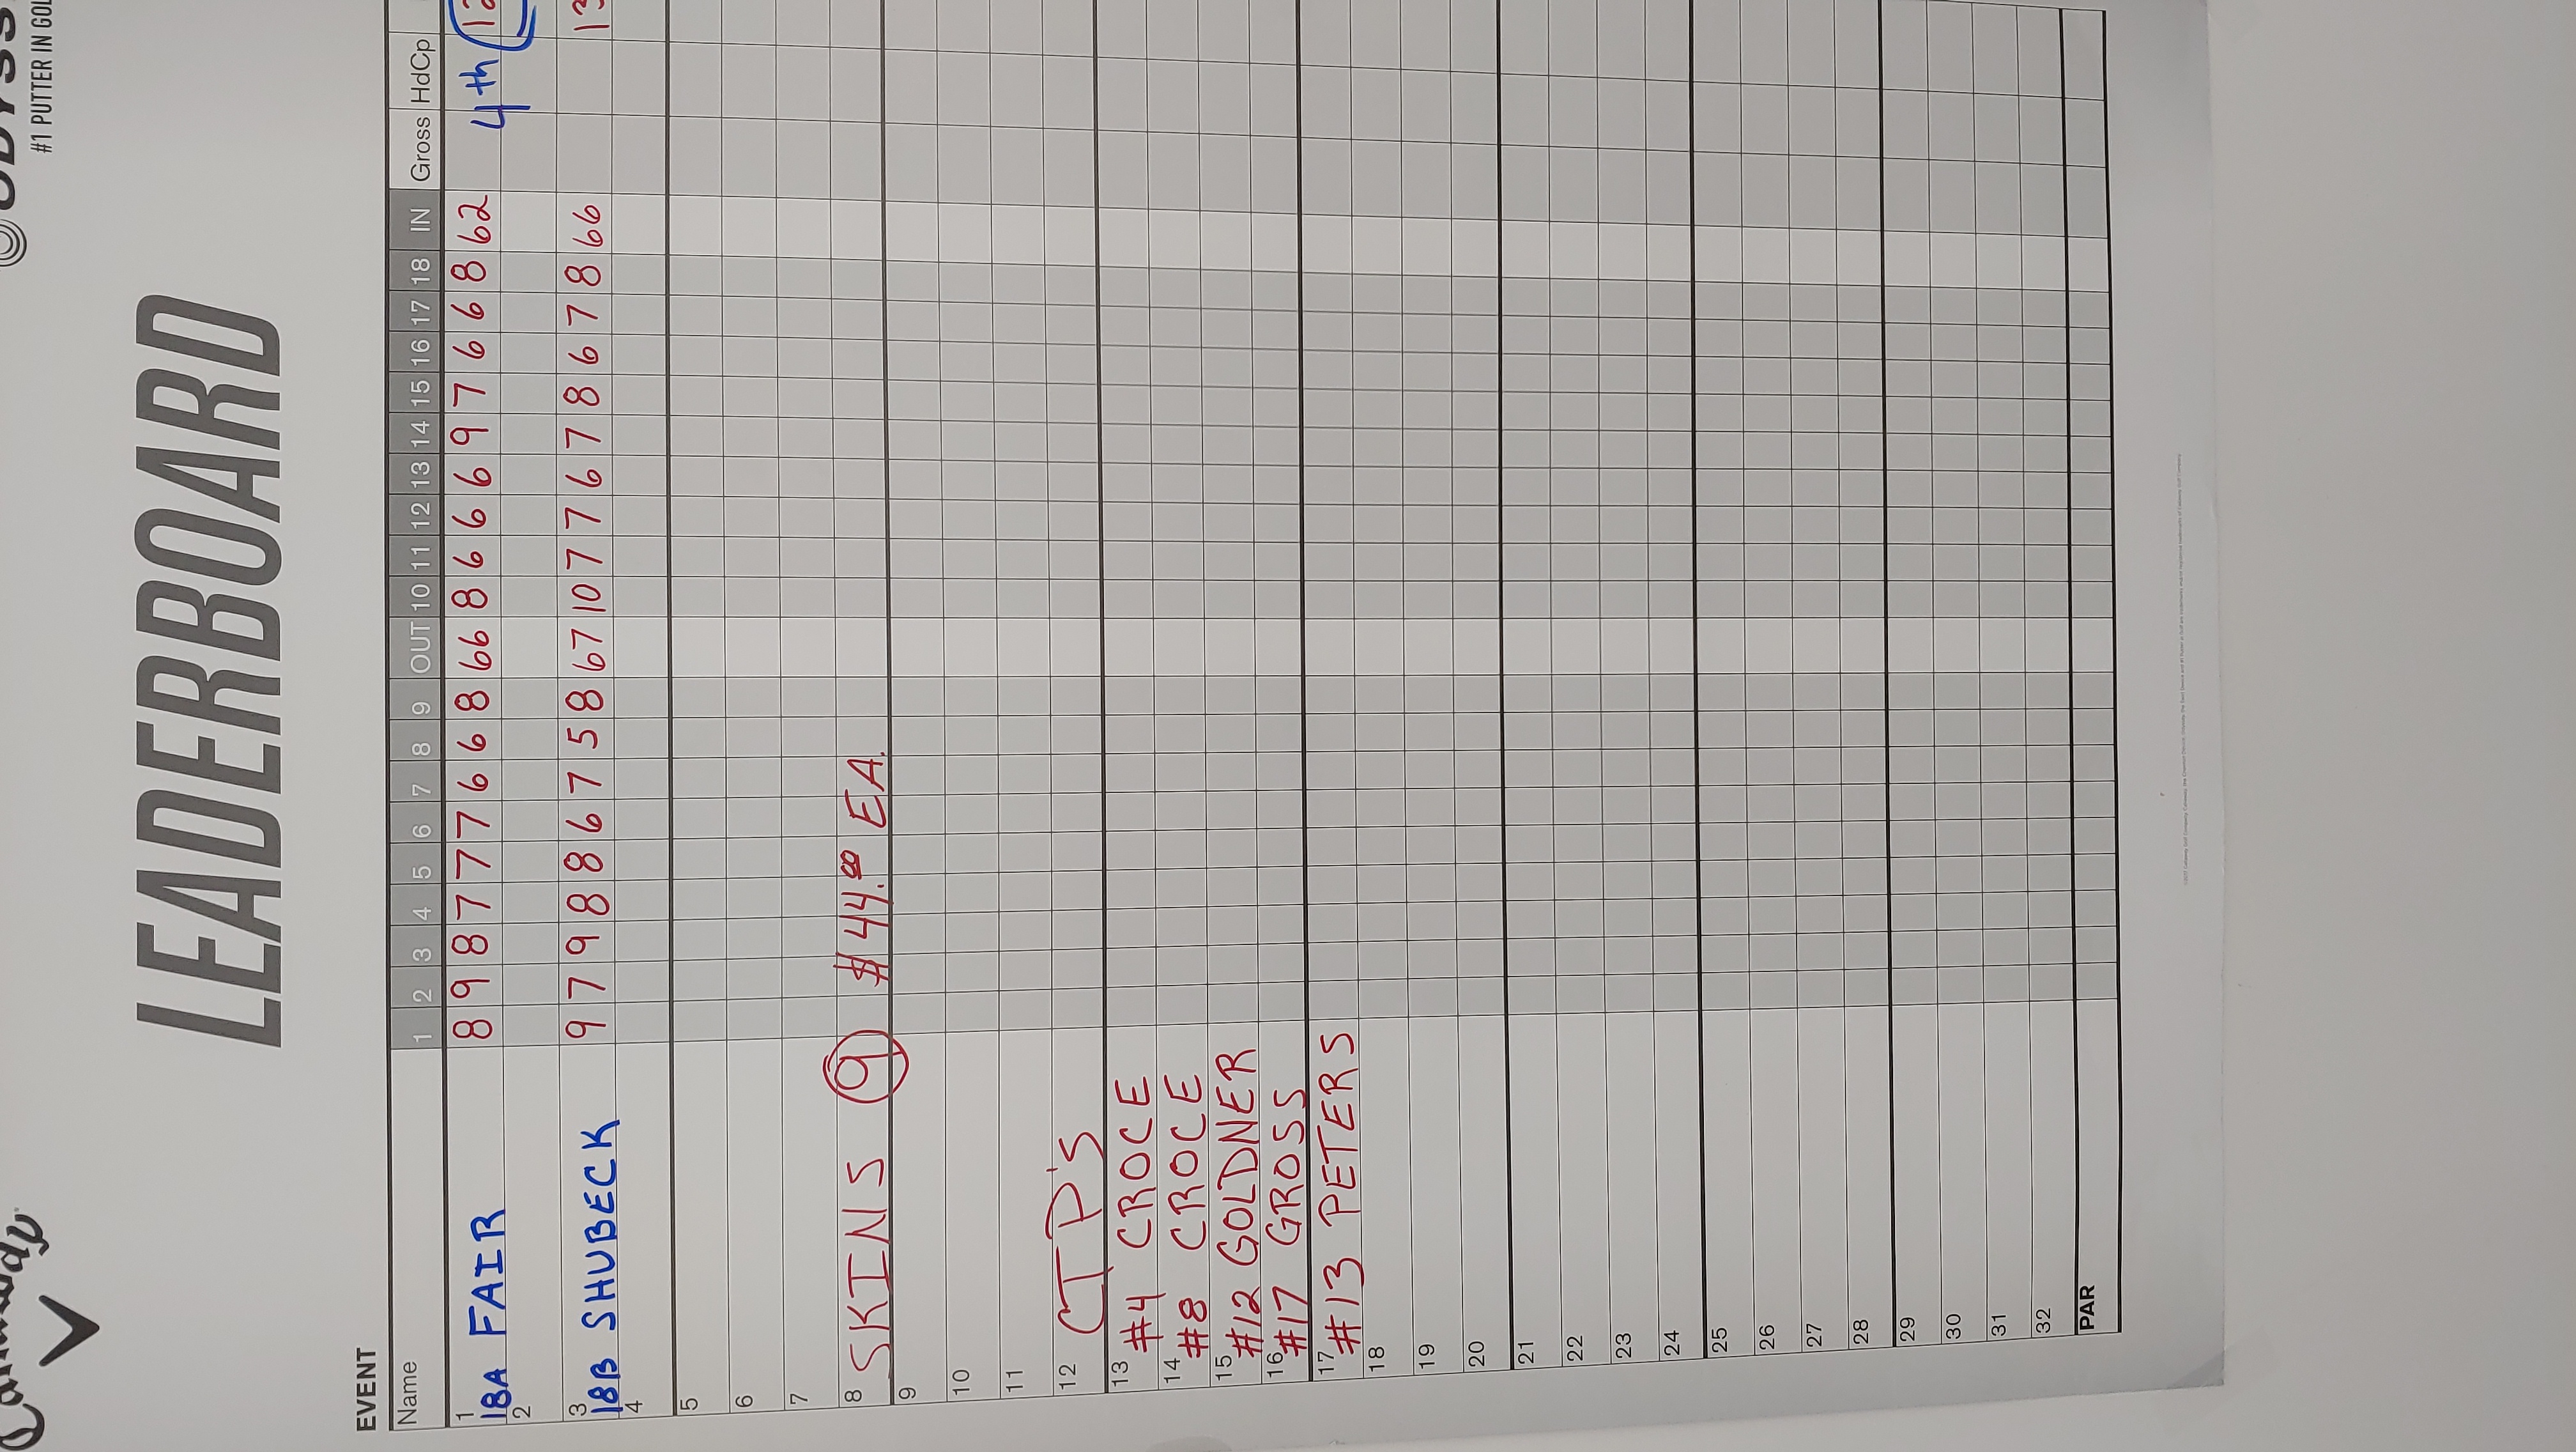 Callaway
#1 PUTTER IN GOL
LEADERBOARD
EVENT
Name 1 2 3 4 5 6 7 8 9 OUT 10 11 12 13 14 15 16 17 18 IN Gross HdCp
1 18A FAIR 8 9 8 7 7 7 6 6 8 66 8 6 6 6 9 7 6 6 8 62 4th
2
3 18B SHUBECK 9 7 9 8 8 6 7 5 8 67 10 7 7 6 7 8 6 7 8 66 13
4
5
6
7
8 SKINS 9 $44.00 EA.
9
10
11
12 CTP'S
13 #4 CROCE
14 #8 CROCE
15 #12 GOLDNER
16 #17 GROSS
17 #13 PETERS
18
19
20
21
22
23
24
25
26
27
28
29
30
31
32
PAR